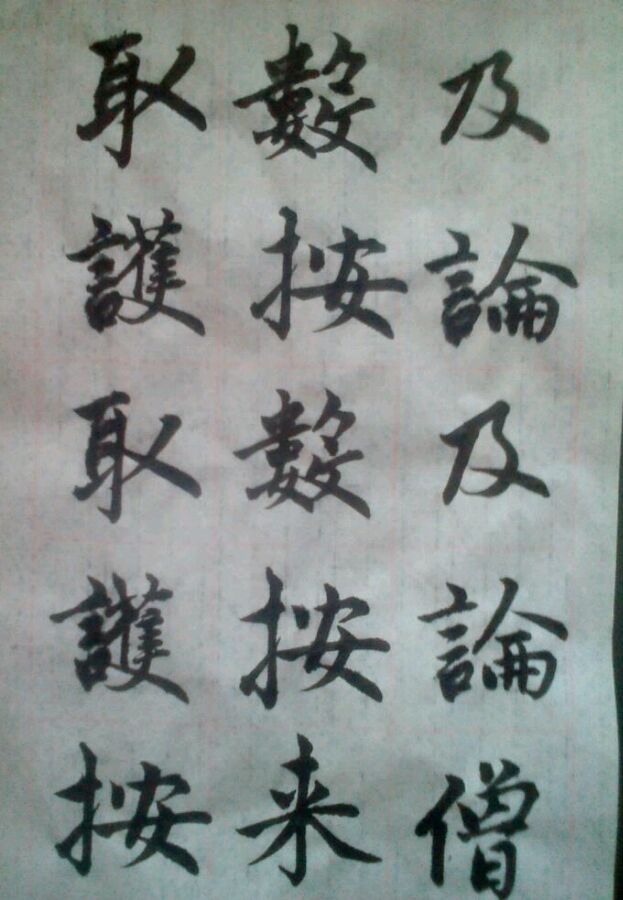 及論及論僧
數按數按来
取護取護按